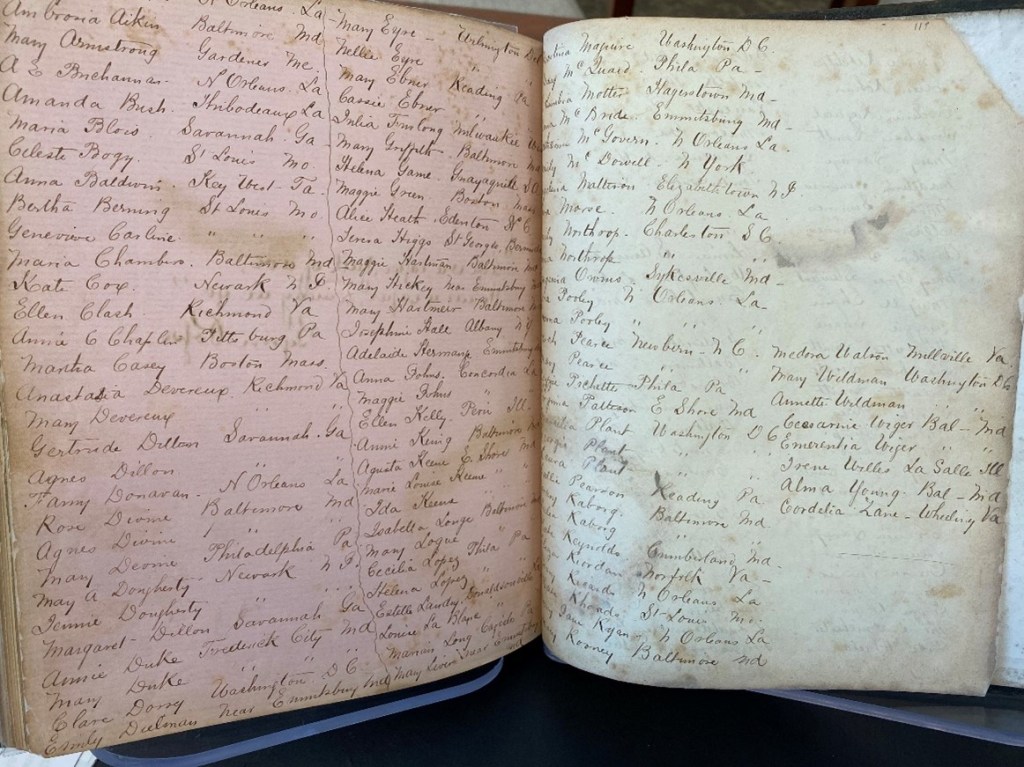 N Orleans. La
Ambrosia Aikin Baltimore Md
Mary Armstrong Gardener Me.
A E Buchannan N Orleans. La
Amanda Bush. Thibodeaux La
Maria Blois Savannah Ga
Celeste Bogy. St Louis Mo.
Anna Baldwin. Key West Fa.
Bertha Berning St Louis Mo.
Genevive Carline " " "
Maria Chambers. Baltimore Md
Kate Cox. Newark N J.
Ellen Clash Richmond Va
Annie C Chaplin Pittsburg Pa
Martha Casey Boston Mass.
Anastasia Devereux Richmond Va
Mary Devereux " "
Gertrude Dillon Savannah. Ga
Agnes Dillon " "
Fanny Donavan. N Orleans La
Rose Divine Baltimore Md
Agnes Divine " "
Mary Deome Philadelphia Pa
Mary A Dougherty Newark N J.
Jennie Dougherty " "
Margaret Dillon Savannah Ga
Annie Duke Frederick City Md
Mary Duke " " "
Clare Dorsy Washington D C.
Emily Dielman near Emmitsburg Md
Mary Eyre - Wilmington Del
Nellie Eyre "
Mary Ebner Reading Pa
Cassie Ebner
Julia Furlong Milwaukee
Mary Griffith - Baltimore
Helena Game Guayaquill
Maggie Green Boston
Alice Heath. Edenton N C.
Teresa Higgs St Georges,
Maggie Hartman Baltimore
Mary Hickey near Emmitsburg
Mary Hartmeir Baltimore
Josephine Hall Albany N Y
Adelaide Hermange Emmitsburg
Anna Johns. Concordia La
Maggie Johns " "
Ellen Kelly Peru Ill.
Annie Kenig Baltimore Md
Agusta Keene E. Shore Md
Marie Louise Keene " "
Ida Keene " "
Isabella Longe Baltimore
Mary Logue
Cecilia Lopez Phila Pa
Helena Lopez " "
Estelle Landry. Donaldsonville
Louise La Blanc
Mamie Long Carlisle Pa
Mary near Emmitsburg Md
115
Maguire Washington D C.
Mc Quaid. Phila Pa -
Motter Hagerstown Md -
Mc Bride. Emmitsburg Md -
Mc Govern. N Orleans La.
Mc Dowell - N York
Matteson Elizabethtown N J
Morse. N Orleans La
Northrop. Charleston S C.
Northrop " "
Owens Sykesville Md -
Posley N Orleans. La
Posley " " "
Pearce Newbern. N C.
Pearce " "
Pochette. Phila Pa
Patteson E Shore Md
Plant Washington D C
Plant " "
Plant - " "
Pearson Reading Pa
Raborg. Baltimore Md
Raborg " "
Reynolds Cumberland Md.
Riordan Norfolk Va -
Ricardo N Orleans La
Rhoads St Louis Mo.
Jane Ryan N Orleans La
Rooney Baltimore Md
Medora Watson Millville Va
Mary Wildman Washington D C
Annette Wildman "
Wizer Bal - Md
Emerentia Wizer "
Irene Willes La Salle Ill
Alma Young. Bal - Md
Cordelia Lane - Wheeling Va